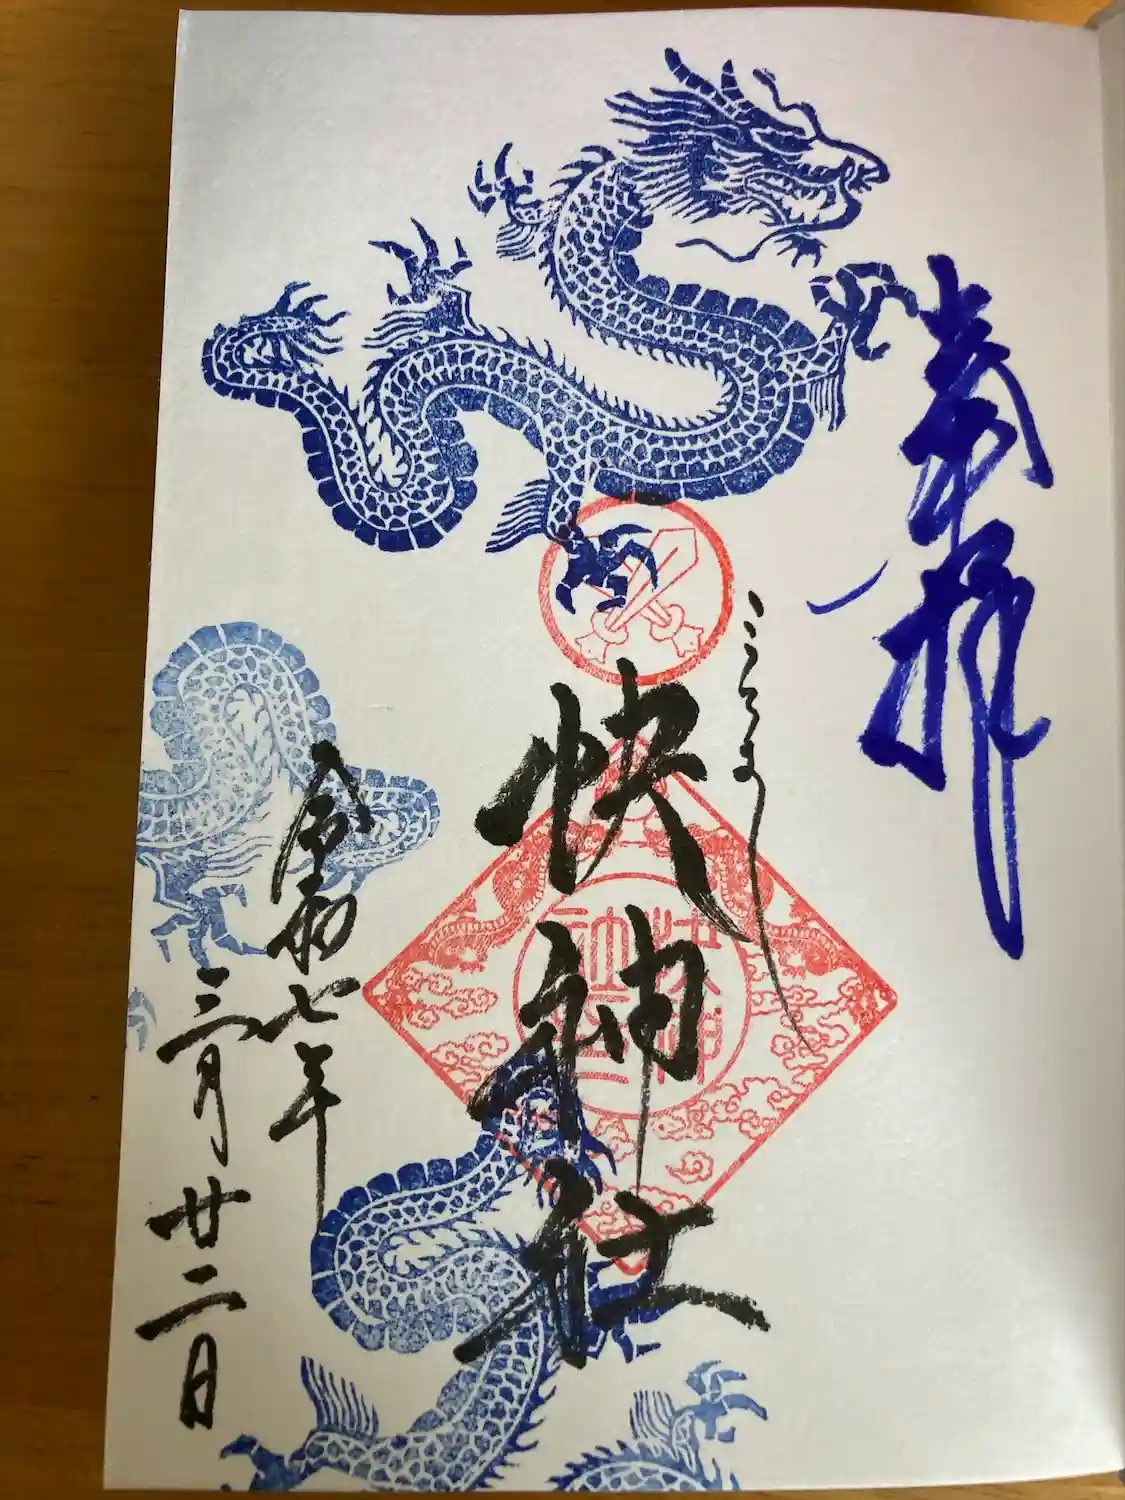 奉拝
こころよし
快神社
令和七年
三月廿二日